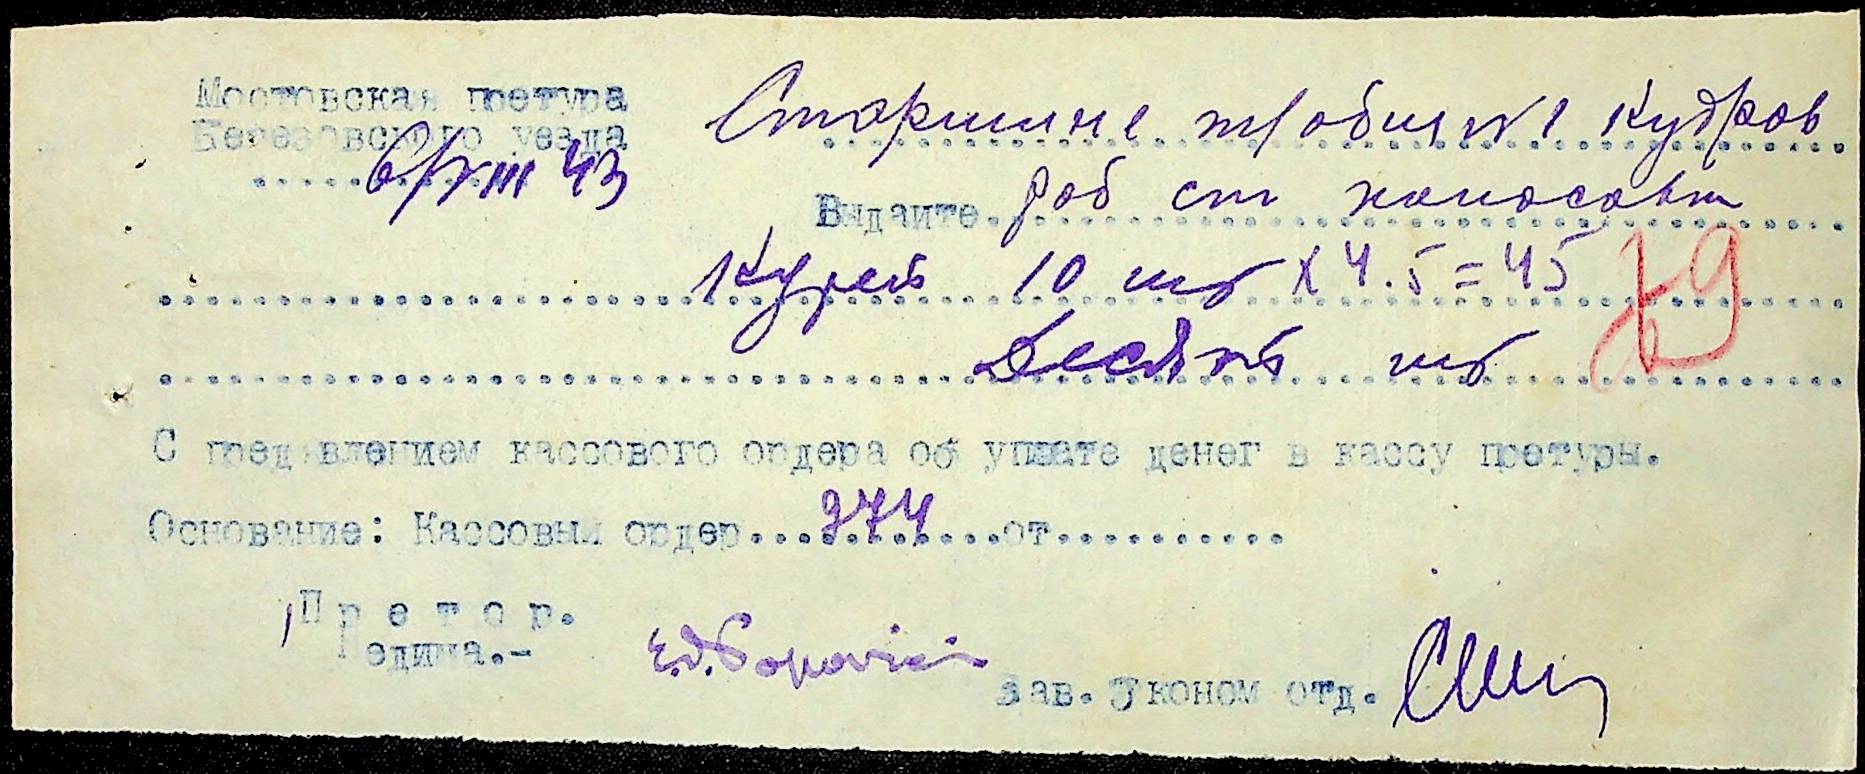 Мостовская претура
Березовского уезда
6/VIII 43
Старшине Кудров
Выдаите раб ст
Курей 10 шт х 4.5 = 45
79
Десять шт
С пред влением кассового ордера об уплате денег в кассу претуры.
Основание: Кассовыи ордер...974...от...........
Претор.
Редима.-
E.d. Popovici
Зав. Эконом отд.